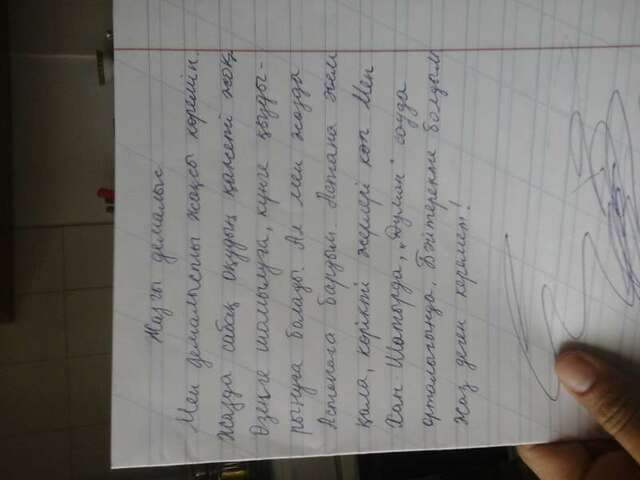 Жазғы демалыс
Мен демалысты жақсы көремін.
Жазда сабақ оқудың қажеті жоқ.
Өзенге шомылуға, күнге қызды-
рынуға болады. Ал мен жазда
Астанаға бардым. Астана әсем
қала, көрікті жерлері көп Мен
Хан-Шатырда, „Думан" сауда
орталығында, Бәйтеректе болдым
Жаз деген керемет!